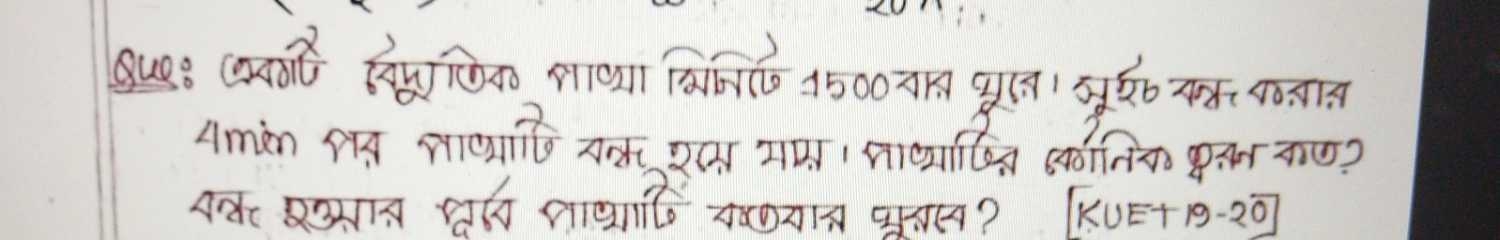 Que: একটি বৈদ্যুতিক পাখা মিনিটে 1500 বার ঘুরে। সুইচ বন্ধ করার
4min পর পাখাটি বন্ধ হয়ে যায়। পাখাটির কৌনিক ত্বরন কত?
বন্ধ হওয়ার পূর্বে পাখাটি কতবার ঘুরবে? [KUET 19-20]